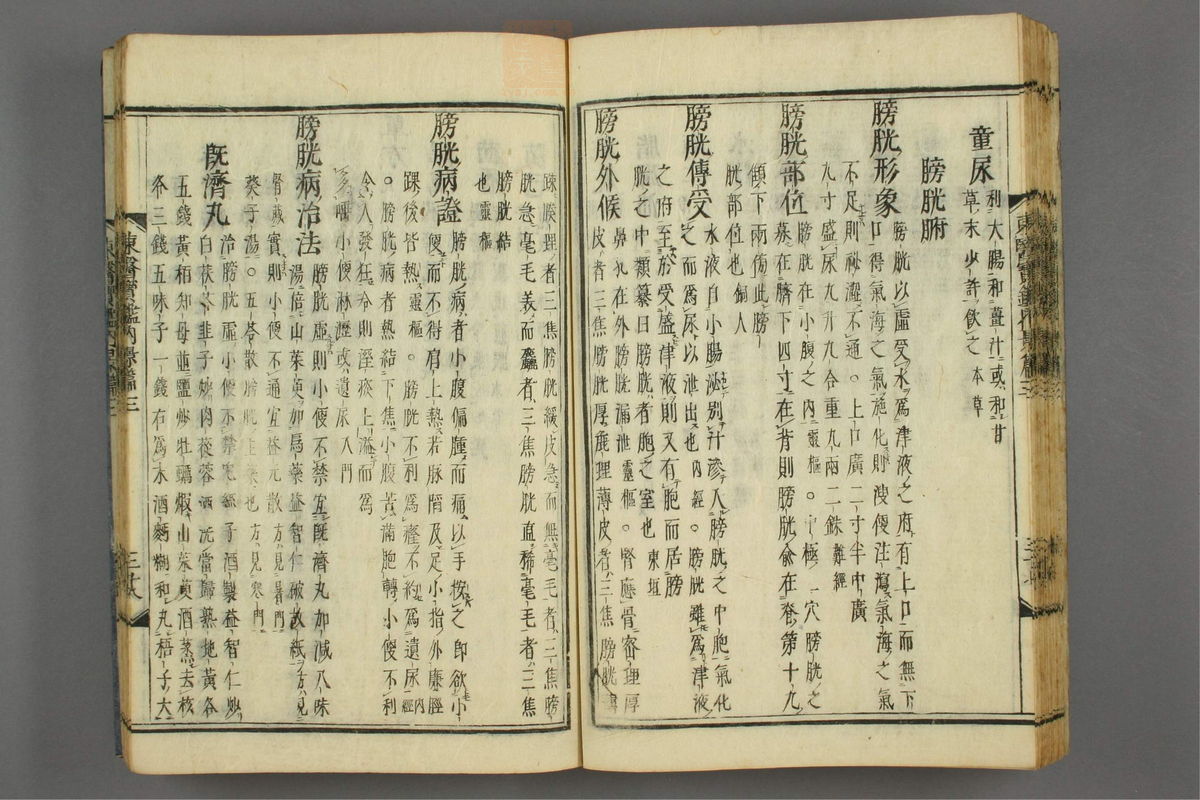 童尿 利大腸和薑汁或和甘
草末少許飲之本草
膀胱腑
膀胱形象 膀胱以虛受水爲津液之府有上口而無下
口得氣海之氣施化則溲便注瀉氣海之氣
不足則祕澀不通○上口廣二寸半中廣
九寸盛尿九升九合重九兩二銖難經
膀胱部位 膀胱在小腹之內靈樞○中極一穴膀胱之
募在臍下四寸在背則膀胱兪在脊第十九
傾下兩傍此膀
胱部位也銅人
膀胱傳受 水液自小腸泌別汁滲入膀胱之中胞氣化
之而爲尿以泄出也內經○膀胱雖爲津液
之府至於受盛津液則又有胞而居膀
胱之中類纂曰膀胱者胞之室也東垣
膀胱外候 鼻孔在外膀胱漏泄靈樞○腎應骨密理厚
皮者三焦膀胱厚麁理薄皮者三焦膀胱薄
踈腠理者三焦膀胱緩皮急而無毫毛者三焦膀
胱急毫毛美而麤者三焦膀胱直稀毫毛者三焦
膀胱結
也靈樞
膀胱病證 膀胱病者小腹偏腫而痛以手按之卽欲小
便而不得肩上熱若脉陷及足小指外廉脛
踝後皆熱靈樞○膀胱不利爲癃不約爲遺尿內經
○膀胱病者熱結下焦小腹苦滿胞轉小便不利
令人發狂冷則溼痰上溢而爲
多唾小便淋瀝或遺尿入門
膀胱病治法 膀胱虛則小便不禁宜旣濟丸加減八味
湯倍山茱萸加烏藥益智仁破故紙方見
腎臟實則小便不通宜益元散方見暑門
葵子湯○五苓散膀胱主藥也方見寒門
旣濟丸 治膀胱虛小便不禁兎絲子酒製益智仁炒
白茯苓韭子炒肉蓯蓉酒洗當歸熟地黃各
五錢黃栢知母並鹽炒牡蠣煆山茱萸酒蒸去核
各三錢五味子一錢右爲末酒麪糊和丸梧子大
東醫寶鑑內景篇三
三十六